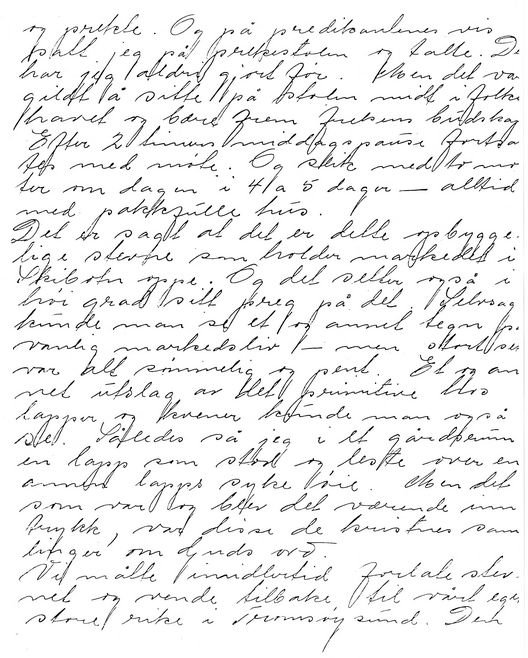 og prekte. Og på predikantenes vis
satt jeg på prekestolen og talte. De
har jeg aldri gjort før. Men det va
gildt å sitte på stolen midt i folke
havet og bære frem frelsens budskap
Efter 2 timers middagspause fortsa
tes med møte. Og slik med to mø
ter om dagen i 4 a 5 dager — alltid
med pakkfulle hus.
Det er sagt at det er dette opbygge.
lige stevne som holder markedet i
Skibotn oppe. Og det setter også i
høi grad sitt preg på det. Selvsag
kunde man se et og annet tegn på
vanlig markedsliv — men stort set
var alt sømmelig og pent. Et og an
net utslag av det primitive hos
lapper og kvener kunde man også
se. Således så jeg i et gårdsrum
en lapp som stod og leste over en
annen lapps syke øie. Men det
som var og blev det værende inn
trykk, var disse de kristnes sam
linger om Guds ord.
Vi måtte imidlertid forlate stev
net og vende tilbake til vårt ege
store rike i Tromsøysund. Den